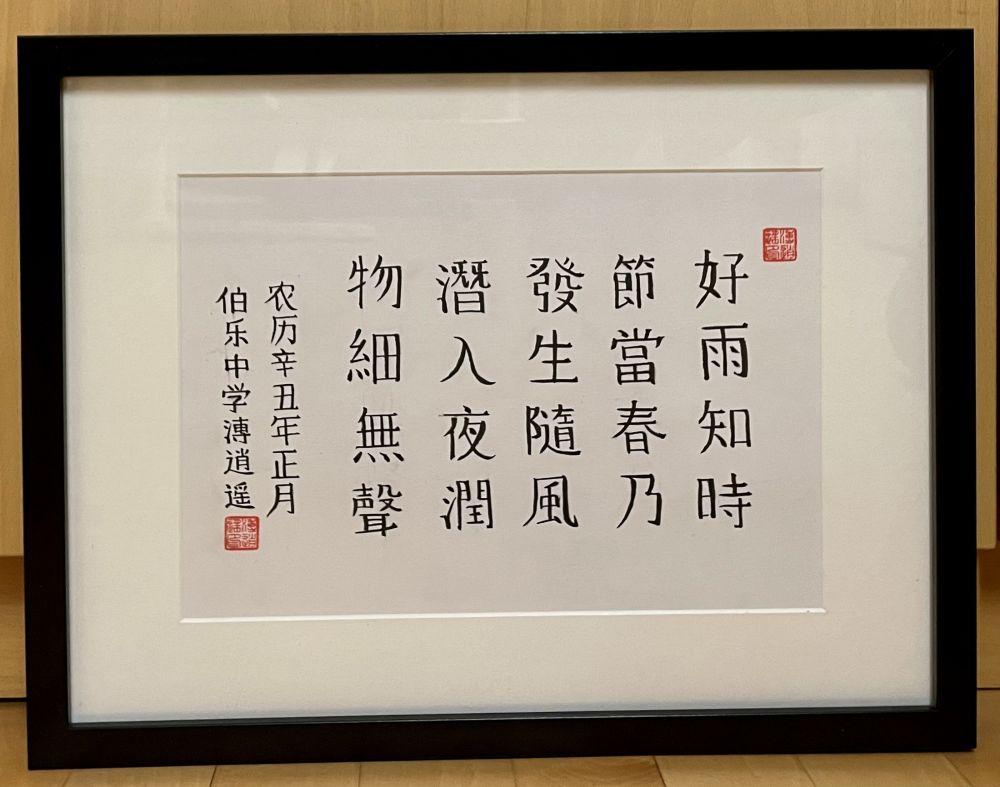 好雨知時
節當春乃
發生隨風
潛入夜潤
物細無聲
农历辛丑年正月
伯乐中学漙逍遥